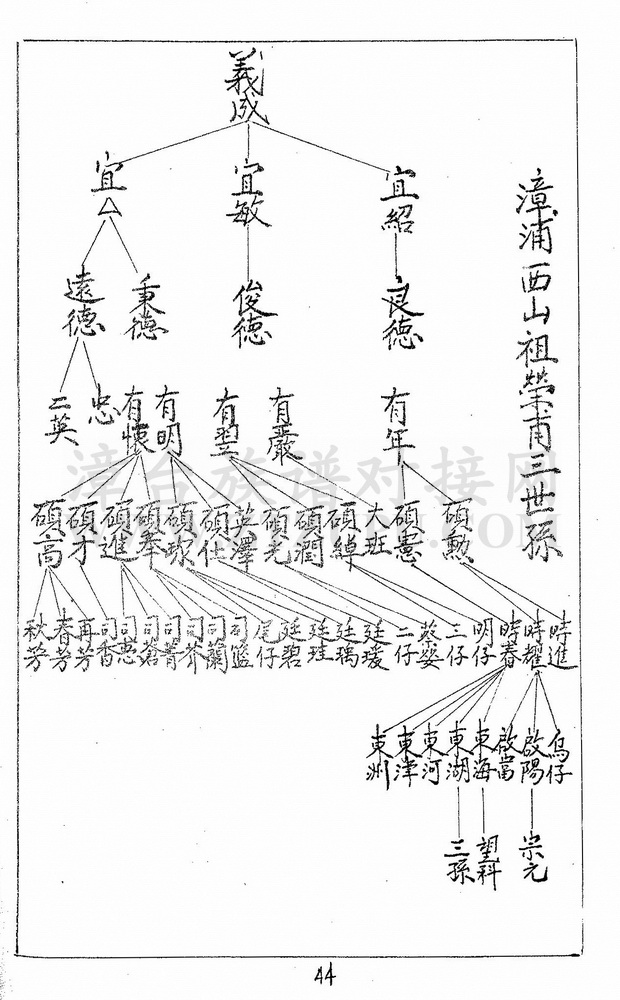 漳浦西山祖榮甫三世孫
義成
宜紹
宜敏
宜△
良德
俊德
秉德
遠德
有年
有嚴
有翌
有明
有懷
忠
二英
碩勲
碩憲
大班
碩縛
碩潤
碩光
英澤
碩仕
碩球
碩奉
碩進
碩才
碩高
時進
時耀
時春
明仔
三仔
蔡婆
二仔
廷瑗
廷瑀
廷珪
廷碧
尾仔
司籃
司蘭
司芥
司菁
司蒼
司惠
司香
再芳
春芳
秋芳
烏仔
啟陽
啟當
東海
東湖
東河
東津
東洲
宗元
望科
三孫
漳台族谱对接网
44